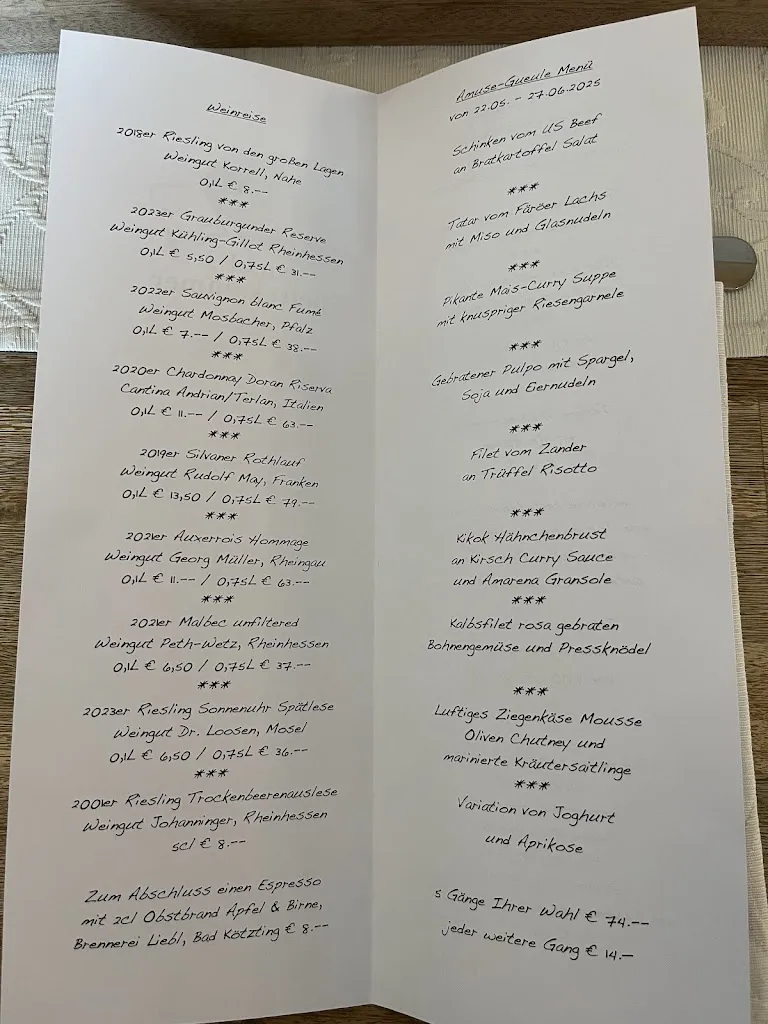 Weinreise
2018er Riesling von den großen Lagen
Weingut Korrell, Nahe
0,1L € 8.--
***
2023er Grauburgunder Reserve
Weingut Kühling-Gillot Rheinhessen
0,1L € 5,50 / 0,75L € 31.--
***
2022er Sauvignon blanc Fumé
Weingut Mosbacher, Pfalz
0,1L € 7.-- / 0,75L € 38.--
***
2020er Chardonnay Doran Riserva
Cantina Andrian/Terlan, Italien
0,1L € 11.-- / 0,75L € 63.--
***
2019er Silvaner Rothlauf
Weingut Rudolf May, Franken
0,1L € 13,50 / 0,75L € 79.--
***
2021er Auxerrois Hommage
Weingut Georg Müller, Rheingau
0,1L € 11.-- / 0,75L € 63.--
***
2021er Malbec unfiltered
Weingut Peth-Wetz, Rheinhessen
0,1L € 6,50 / 0,75L € 37.--
***
2023er Riesling Sonnenuhr Spätlese
Weingut Dr. Loosen, Mosel
0,1L € 6,50 / 0,75L € 36.--
***
2001er Riesling Trockenbeerenauslese
Weingut Johanninger, Rheinhessen
5cl € 8.--
Zum Abschluss einen Espresso
mit 2cl Obstbrand Apfel & Birne,
Brennerei Liebl, Bad Kötzting € 8.--
Amuse-Gueule Menü
von 22.05. - 27.06.2025
Schinken vom US Beef
an Bratkartoffel Salat
***
Tatar vom Färöer Lachs
mit Miso und Glasnudeln
***
Pikante Mais-Curry Suppe
mit knuspriger Riesengarnele
***
Gebratener Pulpo mit Spargel,
Soja und Eiernudeln
***
Filet vom Zander
an Trüffel Risotto
***
Kikok Hähnchenbrust
an Kirsch Curry Sauce
und Amarena Gransole
***
Kalbsfilet rosa gebraten
Bohnengemüse und Pressknödel
***
Luftiges Ziegenkäse Mousse
Oliven Chutney und
marinierte Kräutersaitlinge
***
Variation von Joghurt
und Aprikose
5 Gänge Ihrer Wahl € 74.--
jeder weitere Gang € 14.-